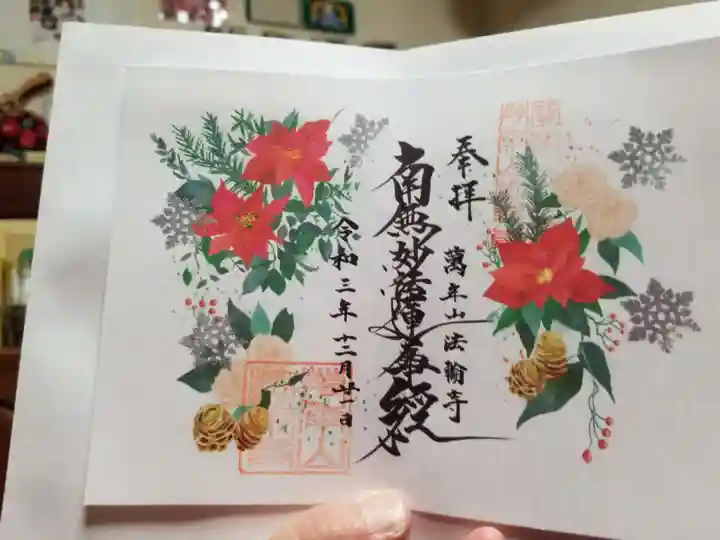 奉拝
萬年山法輪寺
南無妙法蓮華経
令和三年十二月廿一日